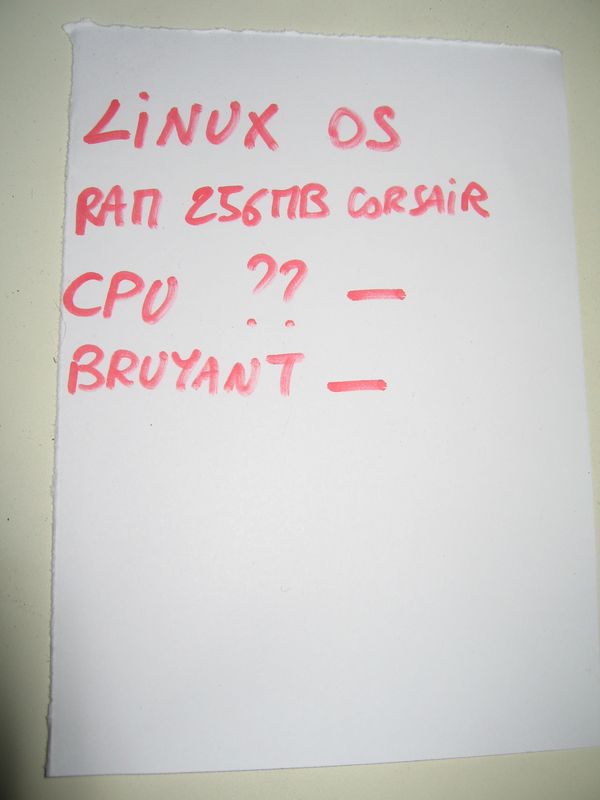 LiNUX OS
RAM 256MB CORSAiR
CPU ?? —
BRUYANT —